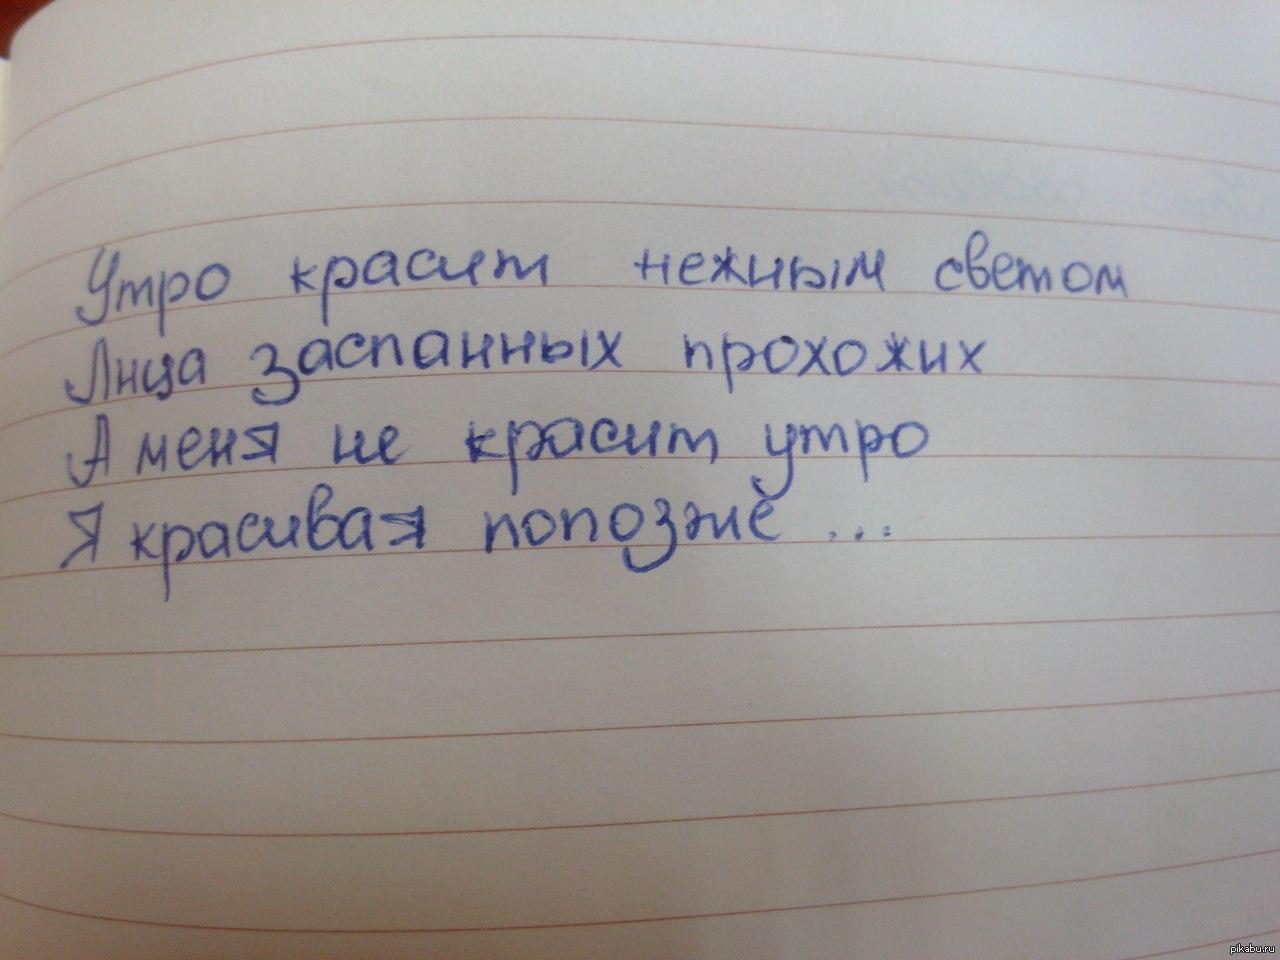 Утро красит нежным светом
Лица заспанных прохожих
А меня не красит утро
Я красивая попозже ...
pikabu.ru